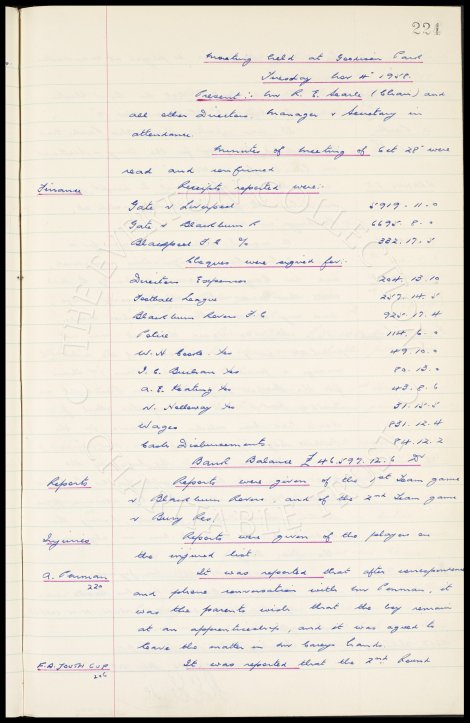 224
Meeting held at Goodison Park
Tuesday Nov 4th 1958.
Present:- Mr R. E. Searle (Chair) and
all other Directors, Manager & Secretary in
attendance.
Minutes of Meeting of Oct 28th were
read and confirmed
Finance Receipts reported were:-
Gate v Liverpool 5919.11.0
Gate v Blackburn R 6695.8.0
Blackpool F.C. % 382.17.5
Cheques were signed for:-
Directors Expenses 204.13.10
Football League 257.14.5
Blackburn Rovers F.C 925.17.4
Police 114.6.0
W.H. Cooke 49.10.0
80.13.0
A.E. Keating 43.8.6
N. Holloway 31.12.5
Wages 831.12.4
Cash Disbursements 84.12.2
Bank Balance £46597.12.6 Dr
Reports Reports were given of the 1st Team game
v Blackburn Rovers, and of the 2nd Team game
v Bury Res.
Injuries Reports were given of the players on
the injured list.
A. Penman It was reported that after correspondence
220 and phone conversation with Mr Penman, it
was the parents wish that the boy remain
at an apprenticeship, and it was agreed to
leave the matter in Mr Careys hands.
F.A. YOUTH CUP It was reported that the 2nd Round
206
THE EVERTON COLLECTION
CHARITABLE